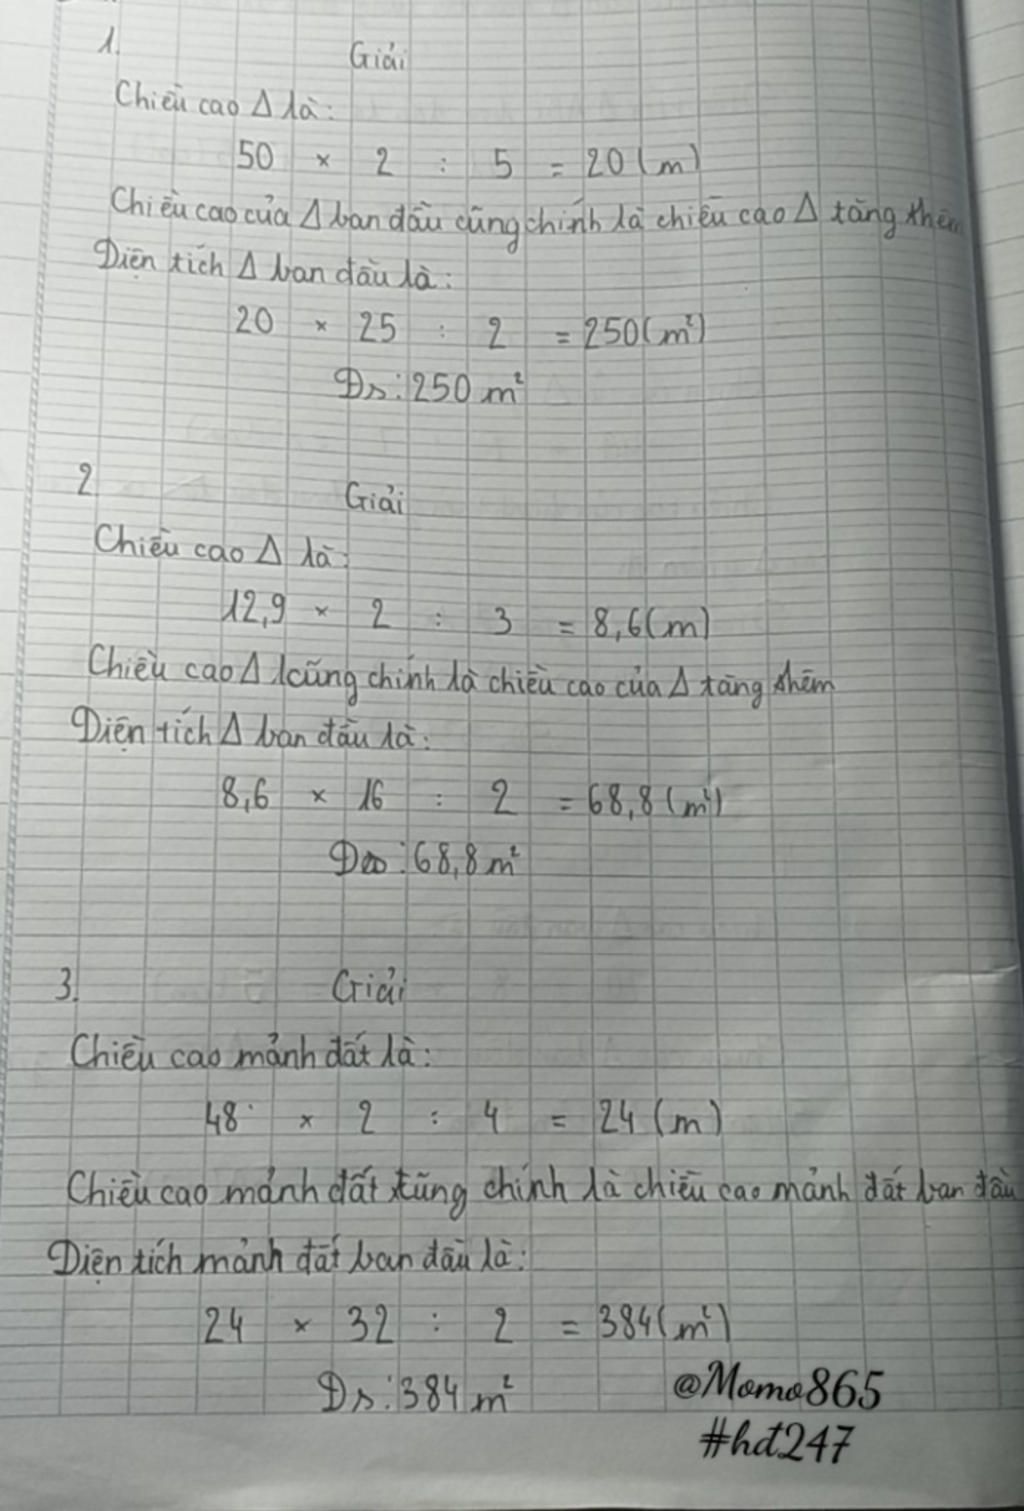 1.
Giải
Chiều cao Δ là:
50 × 2 : 5 = 20 (m)
Chiều cao của Δ ban đầu cũng chính là chiều cao Δ tăng thêm
Diện tích Δ ban đầu là:
20 × 25 : 2 = 250 (m²)
Đs: 250 m²
2
Giải
Chiều cao Δ là:
12,9 × 2 : 3 = 8,6 (m)
Chiều cao Δ cũng chính là chiều cao của Δ tăng thêm
Diện tích Δ ban đầu là:
8,6 × 16 : 2 = 68,8 (m²)
Đs: 68,8 m²
3.
Giải
Chiều cao mảnh đất là:
48 × 2 : 4 = 24 (m)
Chiều cao mảnh đất cũng chính là chiều cao mảnh đất ban đầu
Diện tích mảnh đất ban đầu là:
24 × 32 : 2 = 384 (m²)
Đs: 384 m²
@Momo865
#hđ247